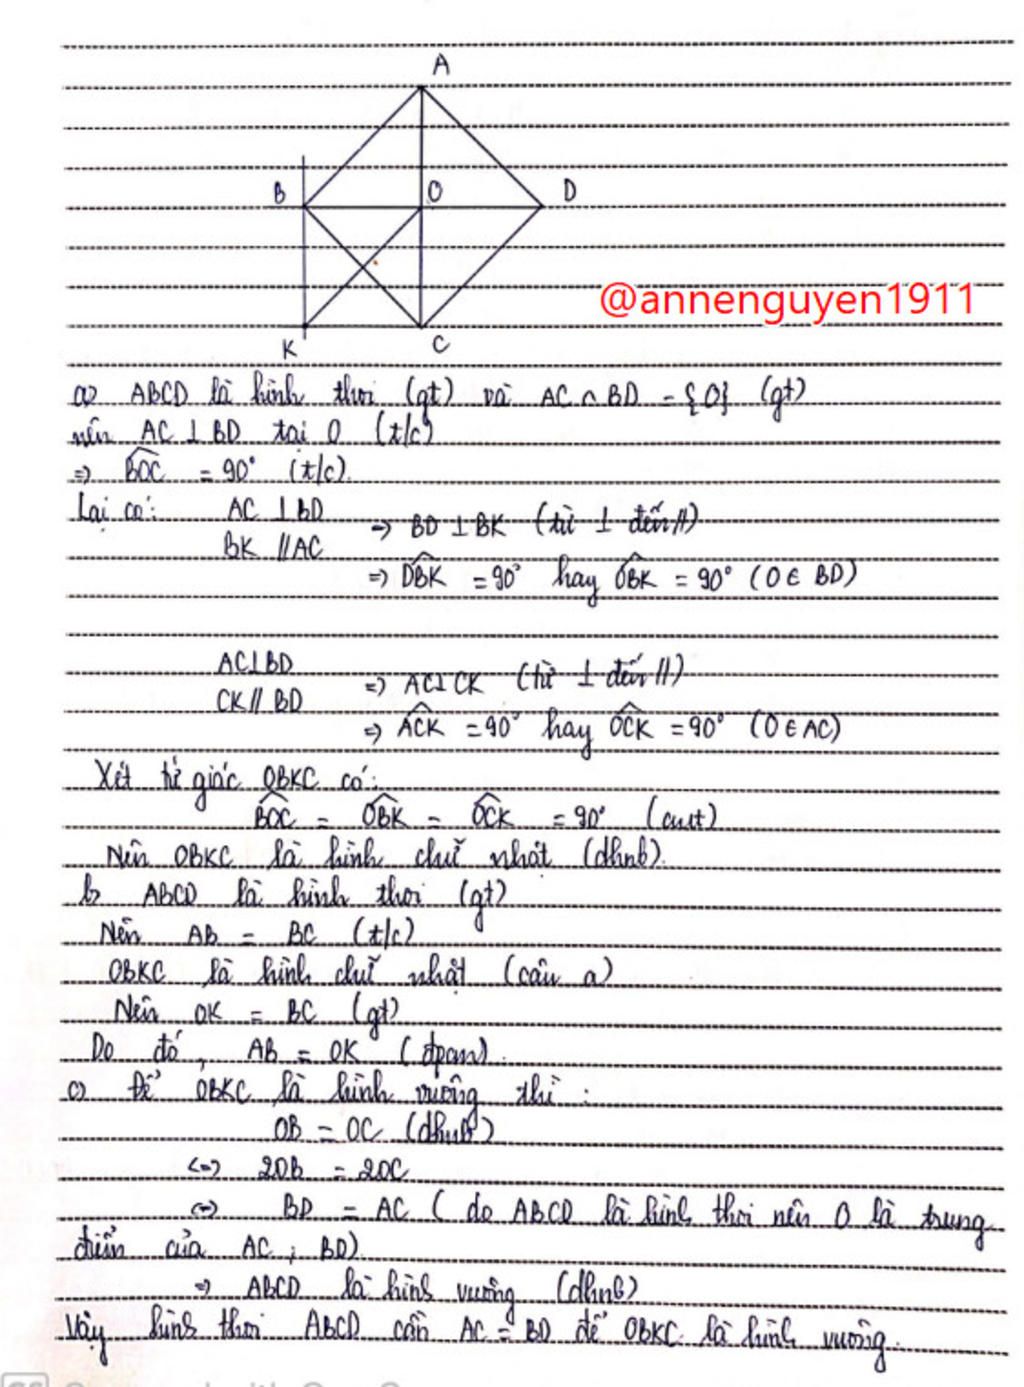 A
B O D
@annenguyen1911
K C
a) ABCD là hình thoi (gt) và AC ∩ BD = {O} (gt)
nên AC ⊥ BD tại O (t/c)
=> BOC = 90° (t/c).
Lại có: AC ⊥ BD
BK // AC
=> BD ⊥ BK (từ ⊥ đến //)
=> DBK = 90° hay OBK = 90° (O ∈ BD)
AC ⊥ BD
CK // BD
=> AC ⊥ CK (từ ⊥ đến //)
=> ACK = 90° hay OCK = 90° (O ∈ AC)
Xét tứ giác OBKC có:
BOC = OBK = OCK = 90° (cmt)
Nên OBKC là hình chữ nhật (dhnb).
b) ABCD là hình thoi (gt)
Nên AB = BC (t/c)
OBKC là hình chữ nhật (câu a)
Nên OK = BC (gt)
Do đó, AB = OK (đpcm).
c) Để OBKC là hình vuông thì :
OB = OC (dhnb)
<=> 2OB = 2OC
<=> BD = AC ( do ABCD là hình thoi nên O là trung
điểm của AC ; BD)
=> ABCD là hình vuông (dhnb)
Vậy hình thoi ABCD cần AC = BD để OBKC là hình vuông.